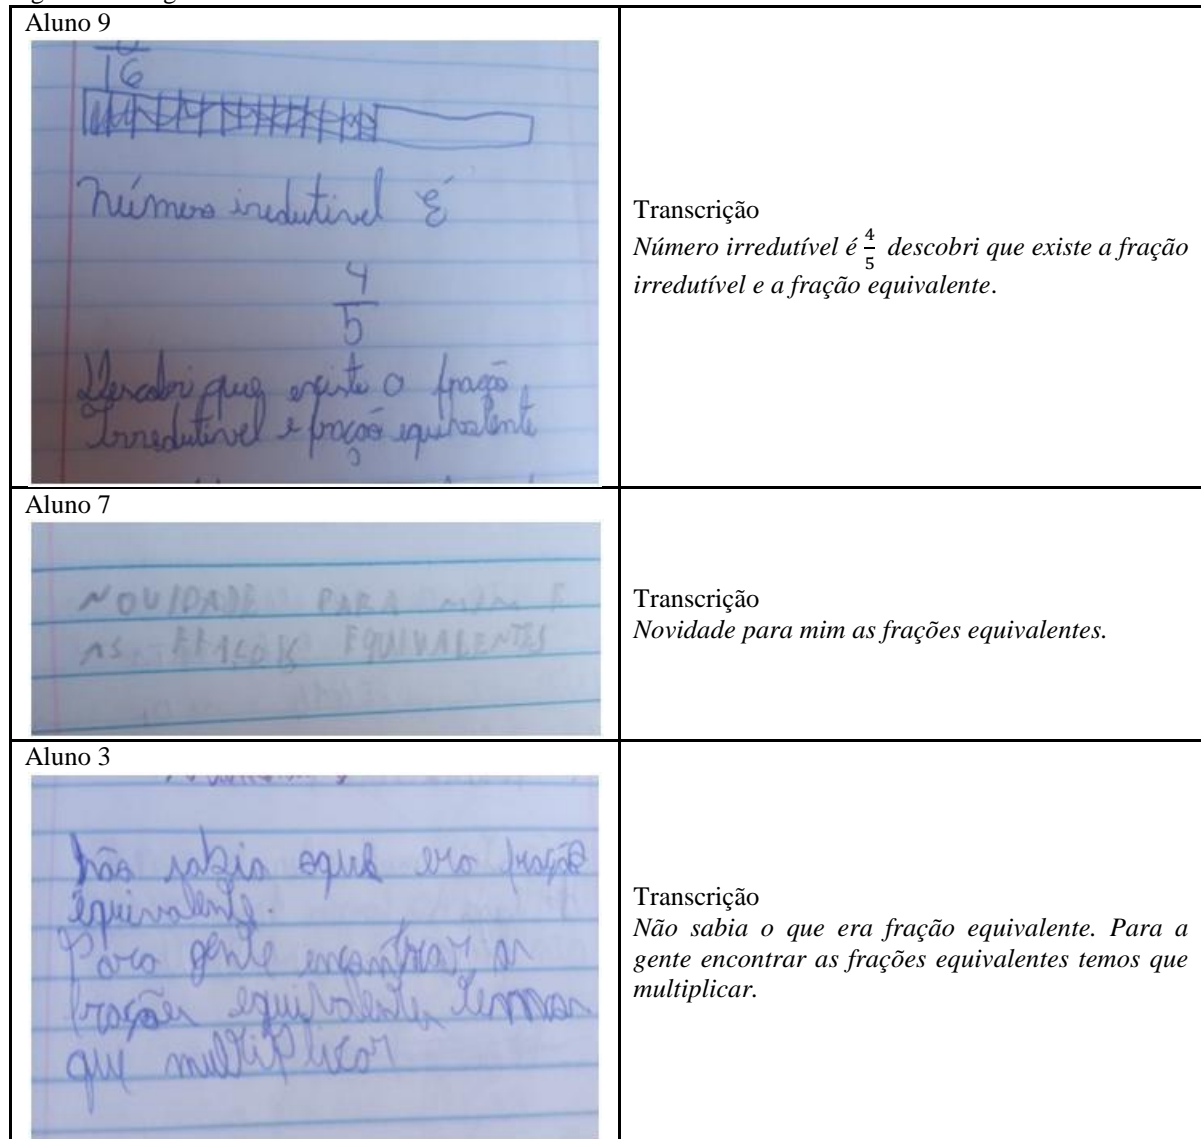 Aluno 9
16
Número iredutivel É
4
5
Descobri que existe a fração
Irredutivel e fração equivalente
Transcrição
Número irredutível é 4/5 descobri que existe a fração
irredutível e a fração equivalente.
Aluno 7
NOVIDADE PARA MIM É
AS FRAÇOIS EQUIVALENTES
Transcrição
Novidade para mim as frações equivalentes.
Aluno 3
não sabia oque era fração
equivalente.
Para gente encontrar as
frações equivalentes temos
que multiplicar
Transcrição
Não sabia o que era fração equivalente. Para a
gente encontrar as frações equivalentes temos que
multiplicar.